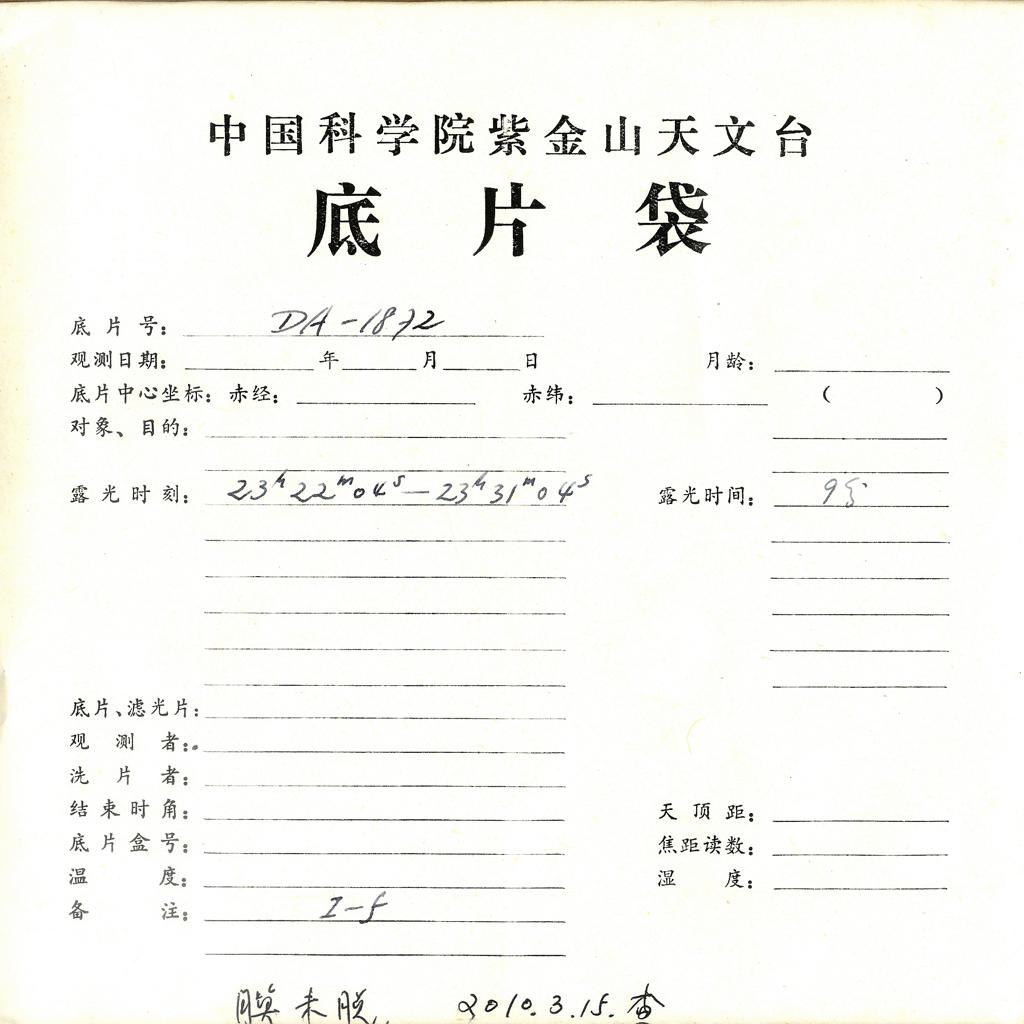 中国科学院紫金山天文台
底片袋
底片号: DA-1872
观测日期: 年 月 日 月龄:
底片中心坐标: 赤经: 赤纬: ( )
对象、目的:
露光时刻: 23h22m04s—23h31m04s 露光时间: 9分
底片、滤光片:
观测者:
洗片者:
结束时角: 天顶距:
底片盒号: 焦距读数:
温度: 湿度:
备注: I-f
膜未脱, 2010.3.15.查